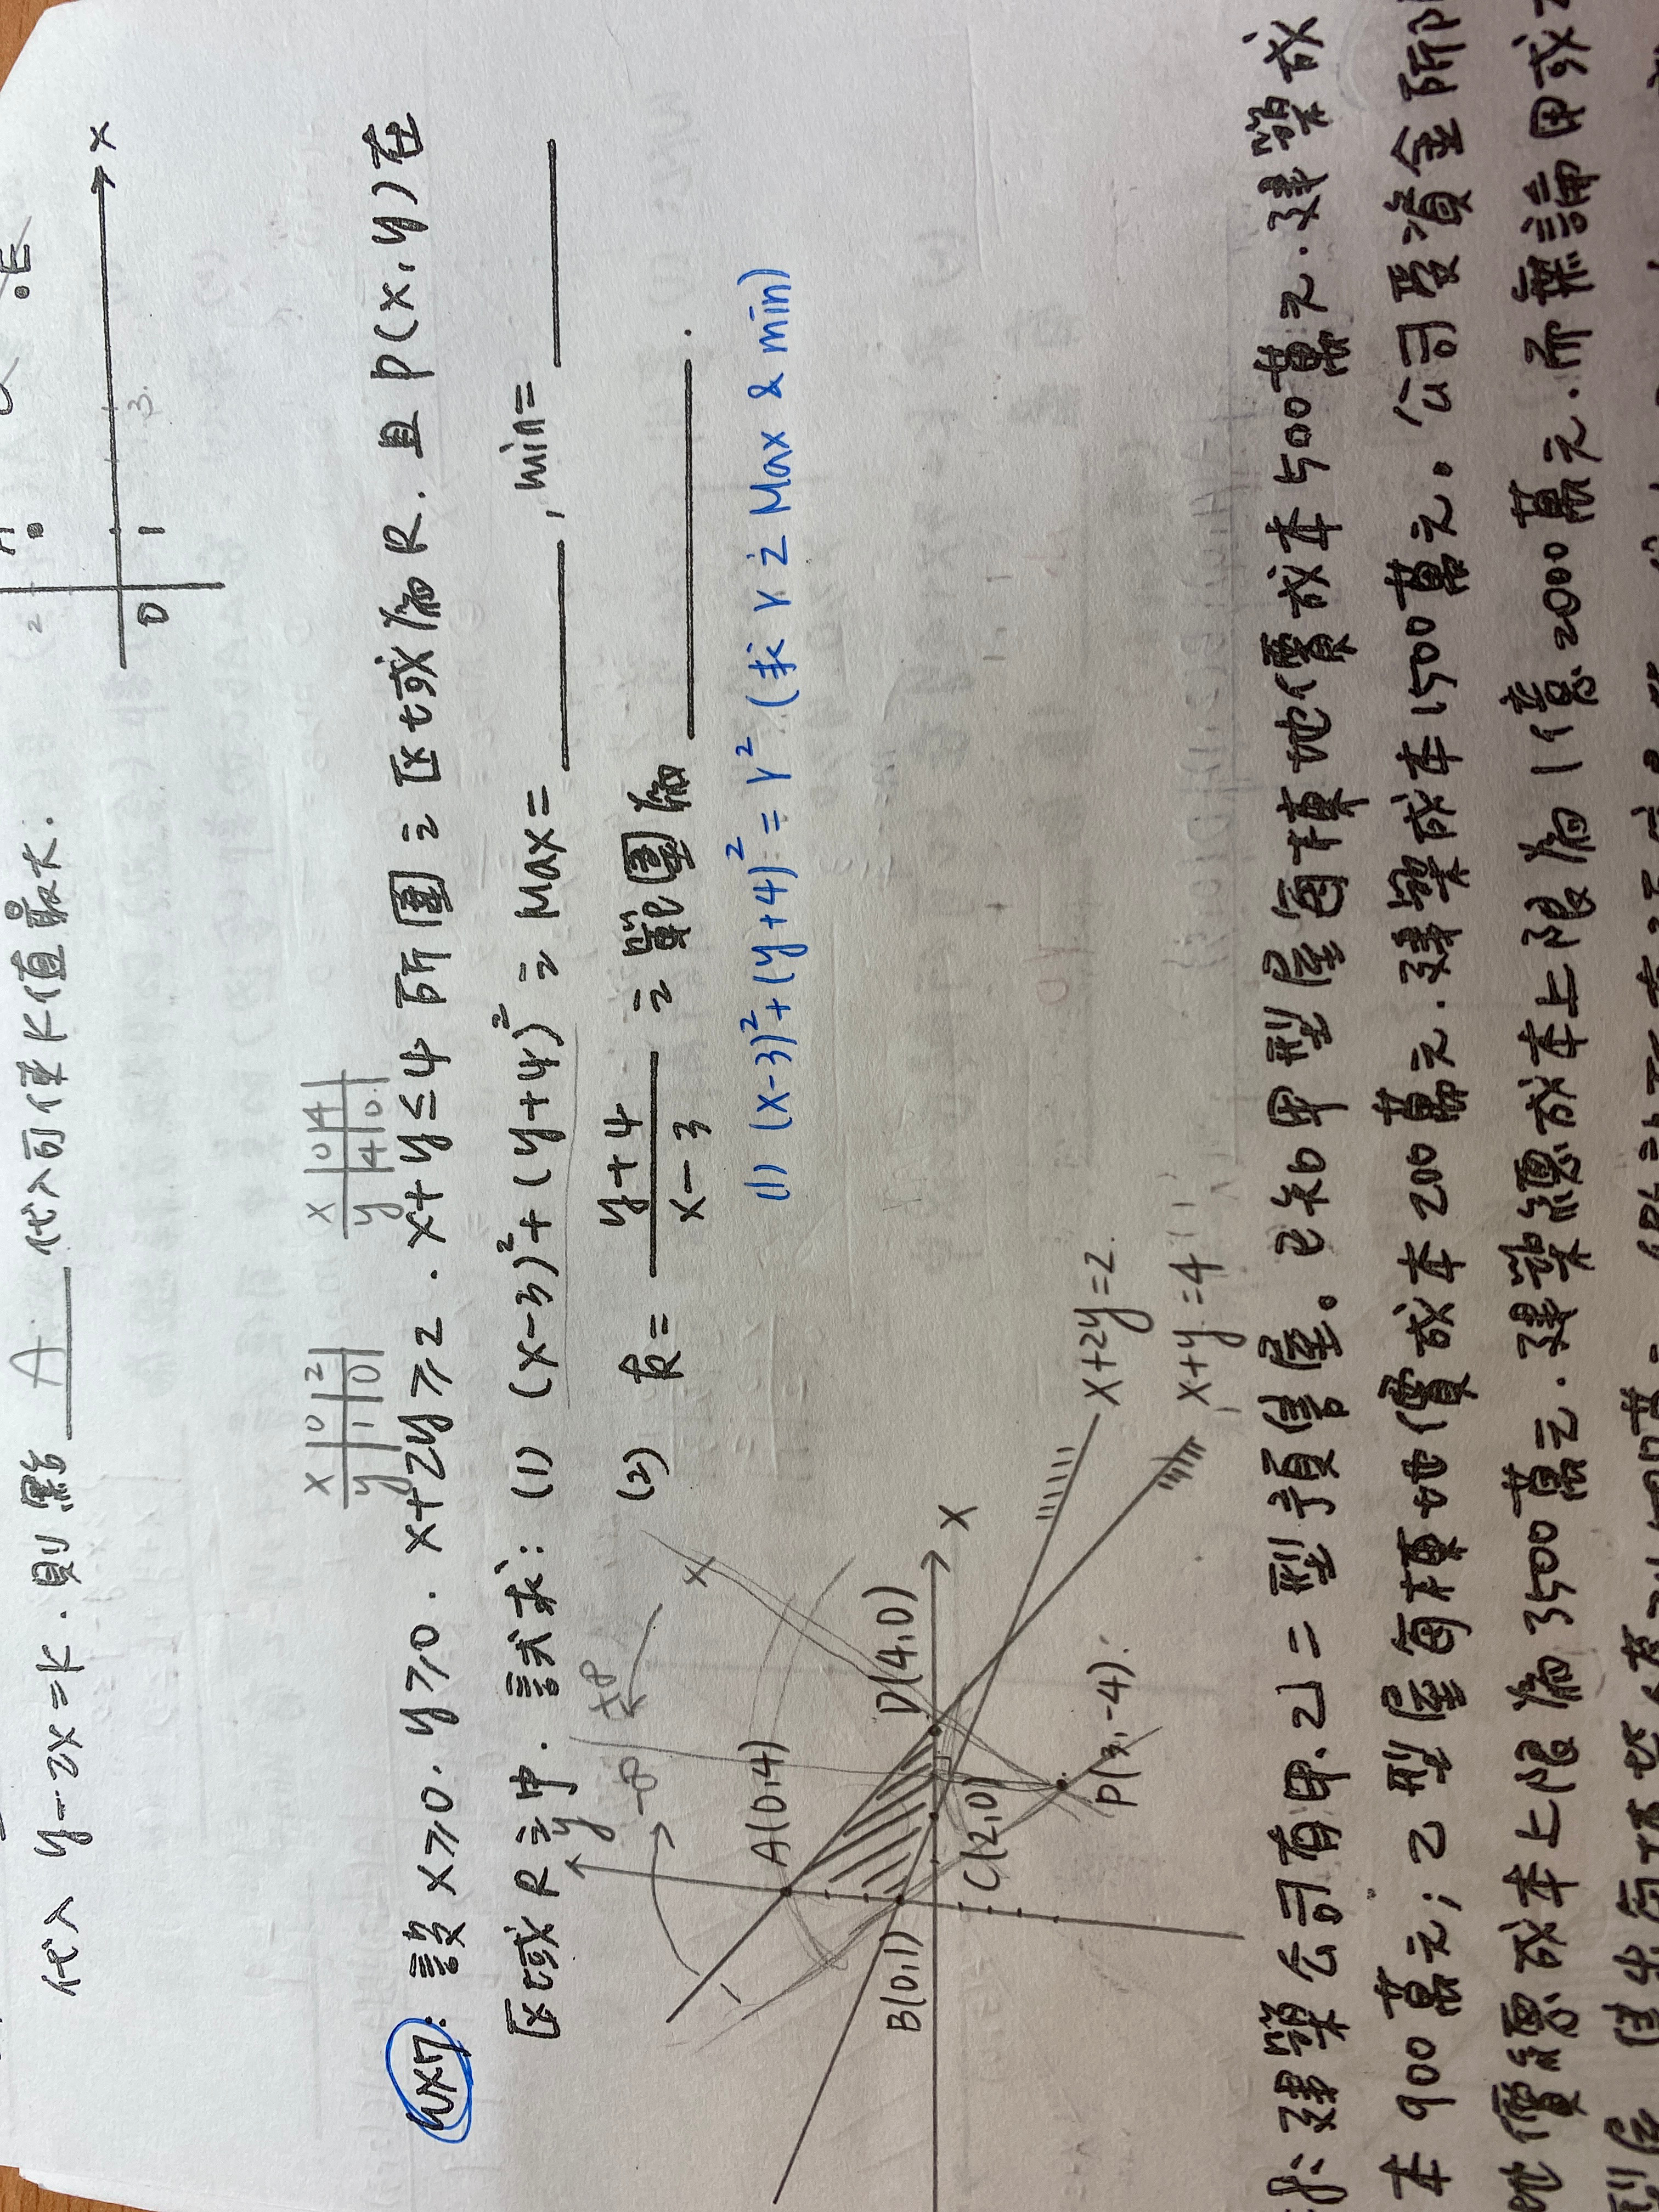 代入 y-2x=k. 則點 A 代入可使 k 值最大.
E
x
0
1
3
x 0 2
y 1 0
x 0 4
y 4 0
Ex7: 設 x≥0. y≥0. x+2y≥2. x+y≤4 所圍之区域為 R. 且 P(x,y)在
区域 R 之中. 試求: (1) (x-3)²+(y+4)² 之 Max= , min=
(2) k= y+4 / x-3 之範圍為 .
(1) (x-3)²+(y+4)²=r² (求 r 之 Max & min)
y
-∞
+∞
A(0,4)
B(0,1)
C(2,0)
D(4,0)
x
P(3,-4)
x+2y=2
x+y=4
建築公司有甲.乙二型預售屋。已知甲型屋每棟地價成本500萬元.建築成
本900萬元; 乙型屋每棟地價成本200萬元.建築成本1500萬元。公司投資金所
地價總成本上限為3500萬元.建築總成本上限為1億2000萬元.而無論甲或